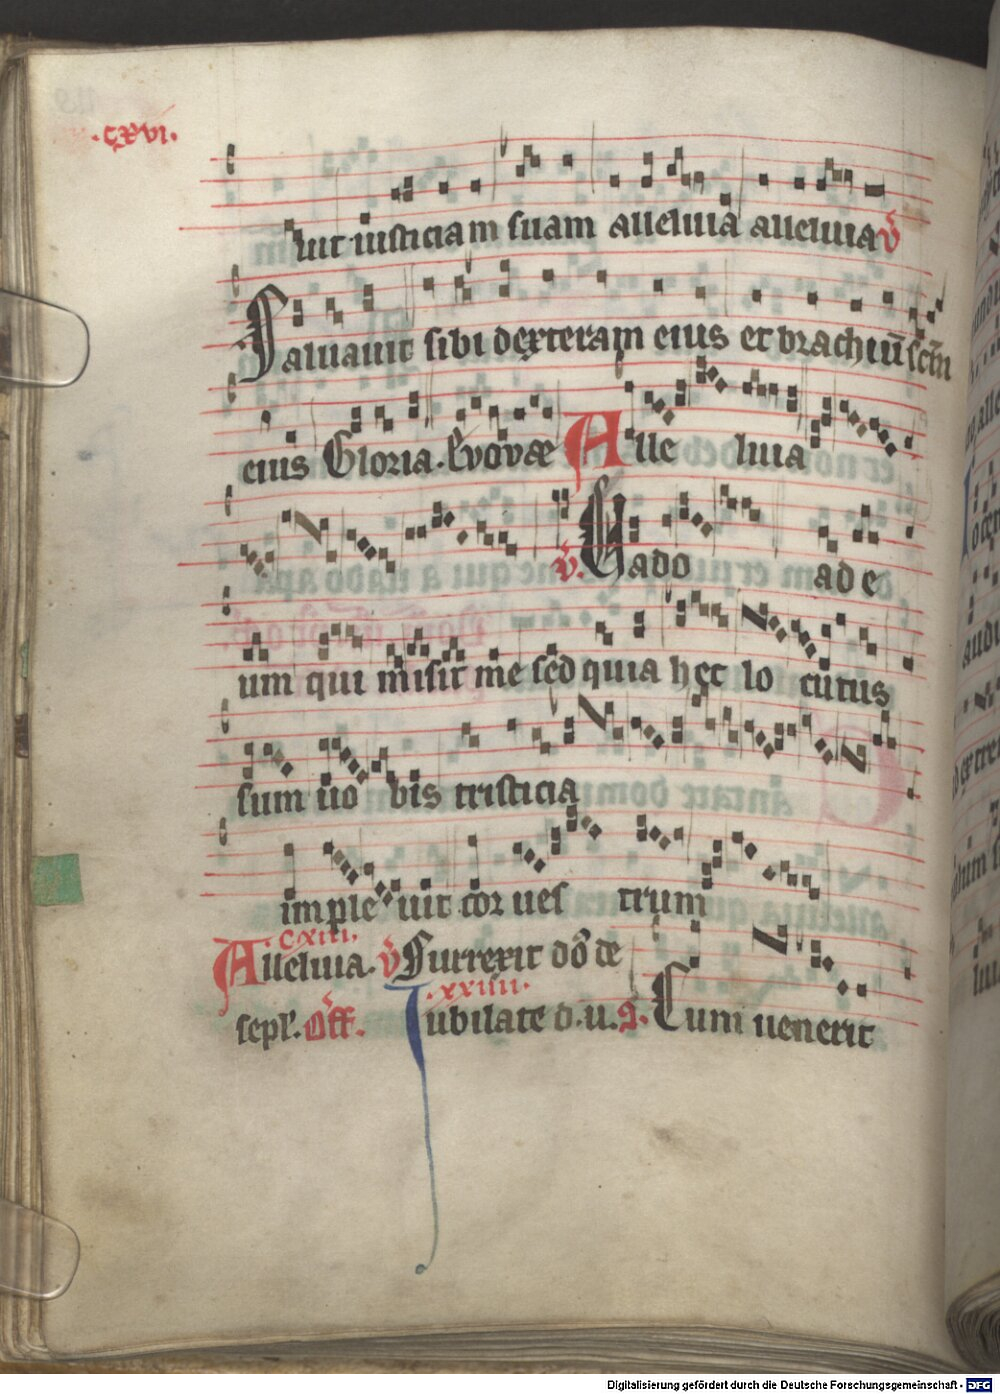 .cxvi.
uit iusticiam suam alleluia alleluia v̄
Saluauit sibi dexteram eius et brachiū sc̄m
eius Gloria. Evovae Alle luia
v̄. Uado ad e
um qui misit me sed quia hec lo cutus
sum uo bis tristicia
imple uit cor ues trum
.cxiii.
Alleluia. v̄ Surrexit dō de
.xxiiii.
sepl'. Off. Iubilate d.u. 9. Cum uenerit
Digitalisierung gefördert durch die Deutsche Forschungsgemeinschaft - DFG